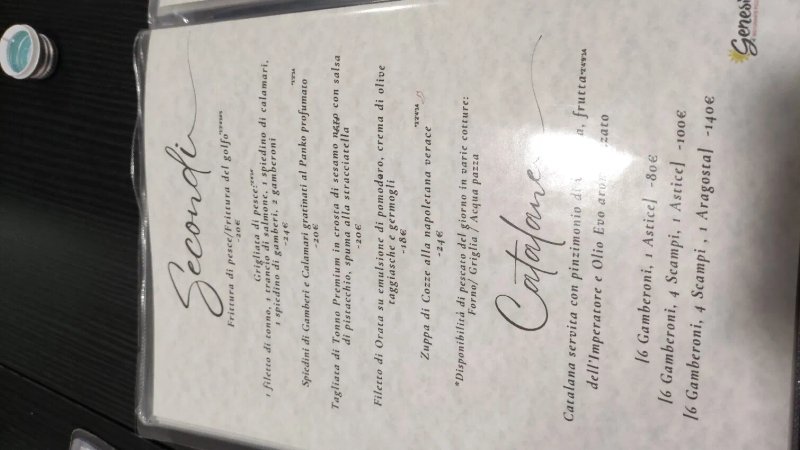 Secondi
Frittura di pesce/Frittura del golfo
-20€
Grigliata di pesce:
1 filetto di tonno, 1 trancio di salmone, 1 spiedino di calamari,
1 spiedino di gamberi, 2 gamberoni
-24€
Spiedini di Gamberi e Calamari gratinati al Panko profumato
-20€
Tagliata di Tonno Premium in crosta di sesamo nero con salsa
di pistacchio, spuma alla stracciatella
-20€
Filetto di Orata su emulsione di pomodoro, crema di olive
taggiasche e germogli
-18€
Zuppa di Cozze alla napoletana verace
-24€
*Disponibilità di pescato del giorno in varie cotture:
Forno/ Griglia / Acqua pazza
Catalane
Catalana servita con pinzimonio frutta
dell'Imperatore e Olio Evo
[6 Gamberoni, 1 Astice] -80€
[6 Gamberoni, 4 Scampi, 1 Astice] -100€
[6 Gamberoni, 4 Scampi , 1 Aragosta] -140€